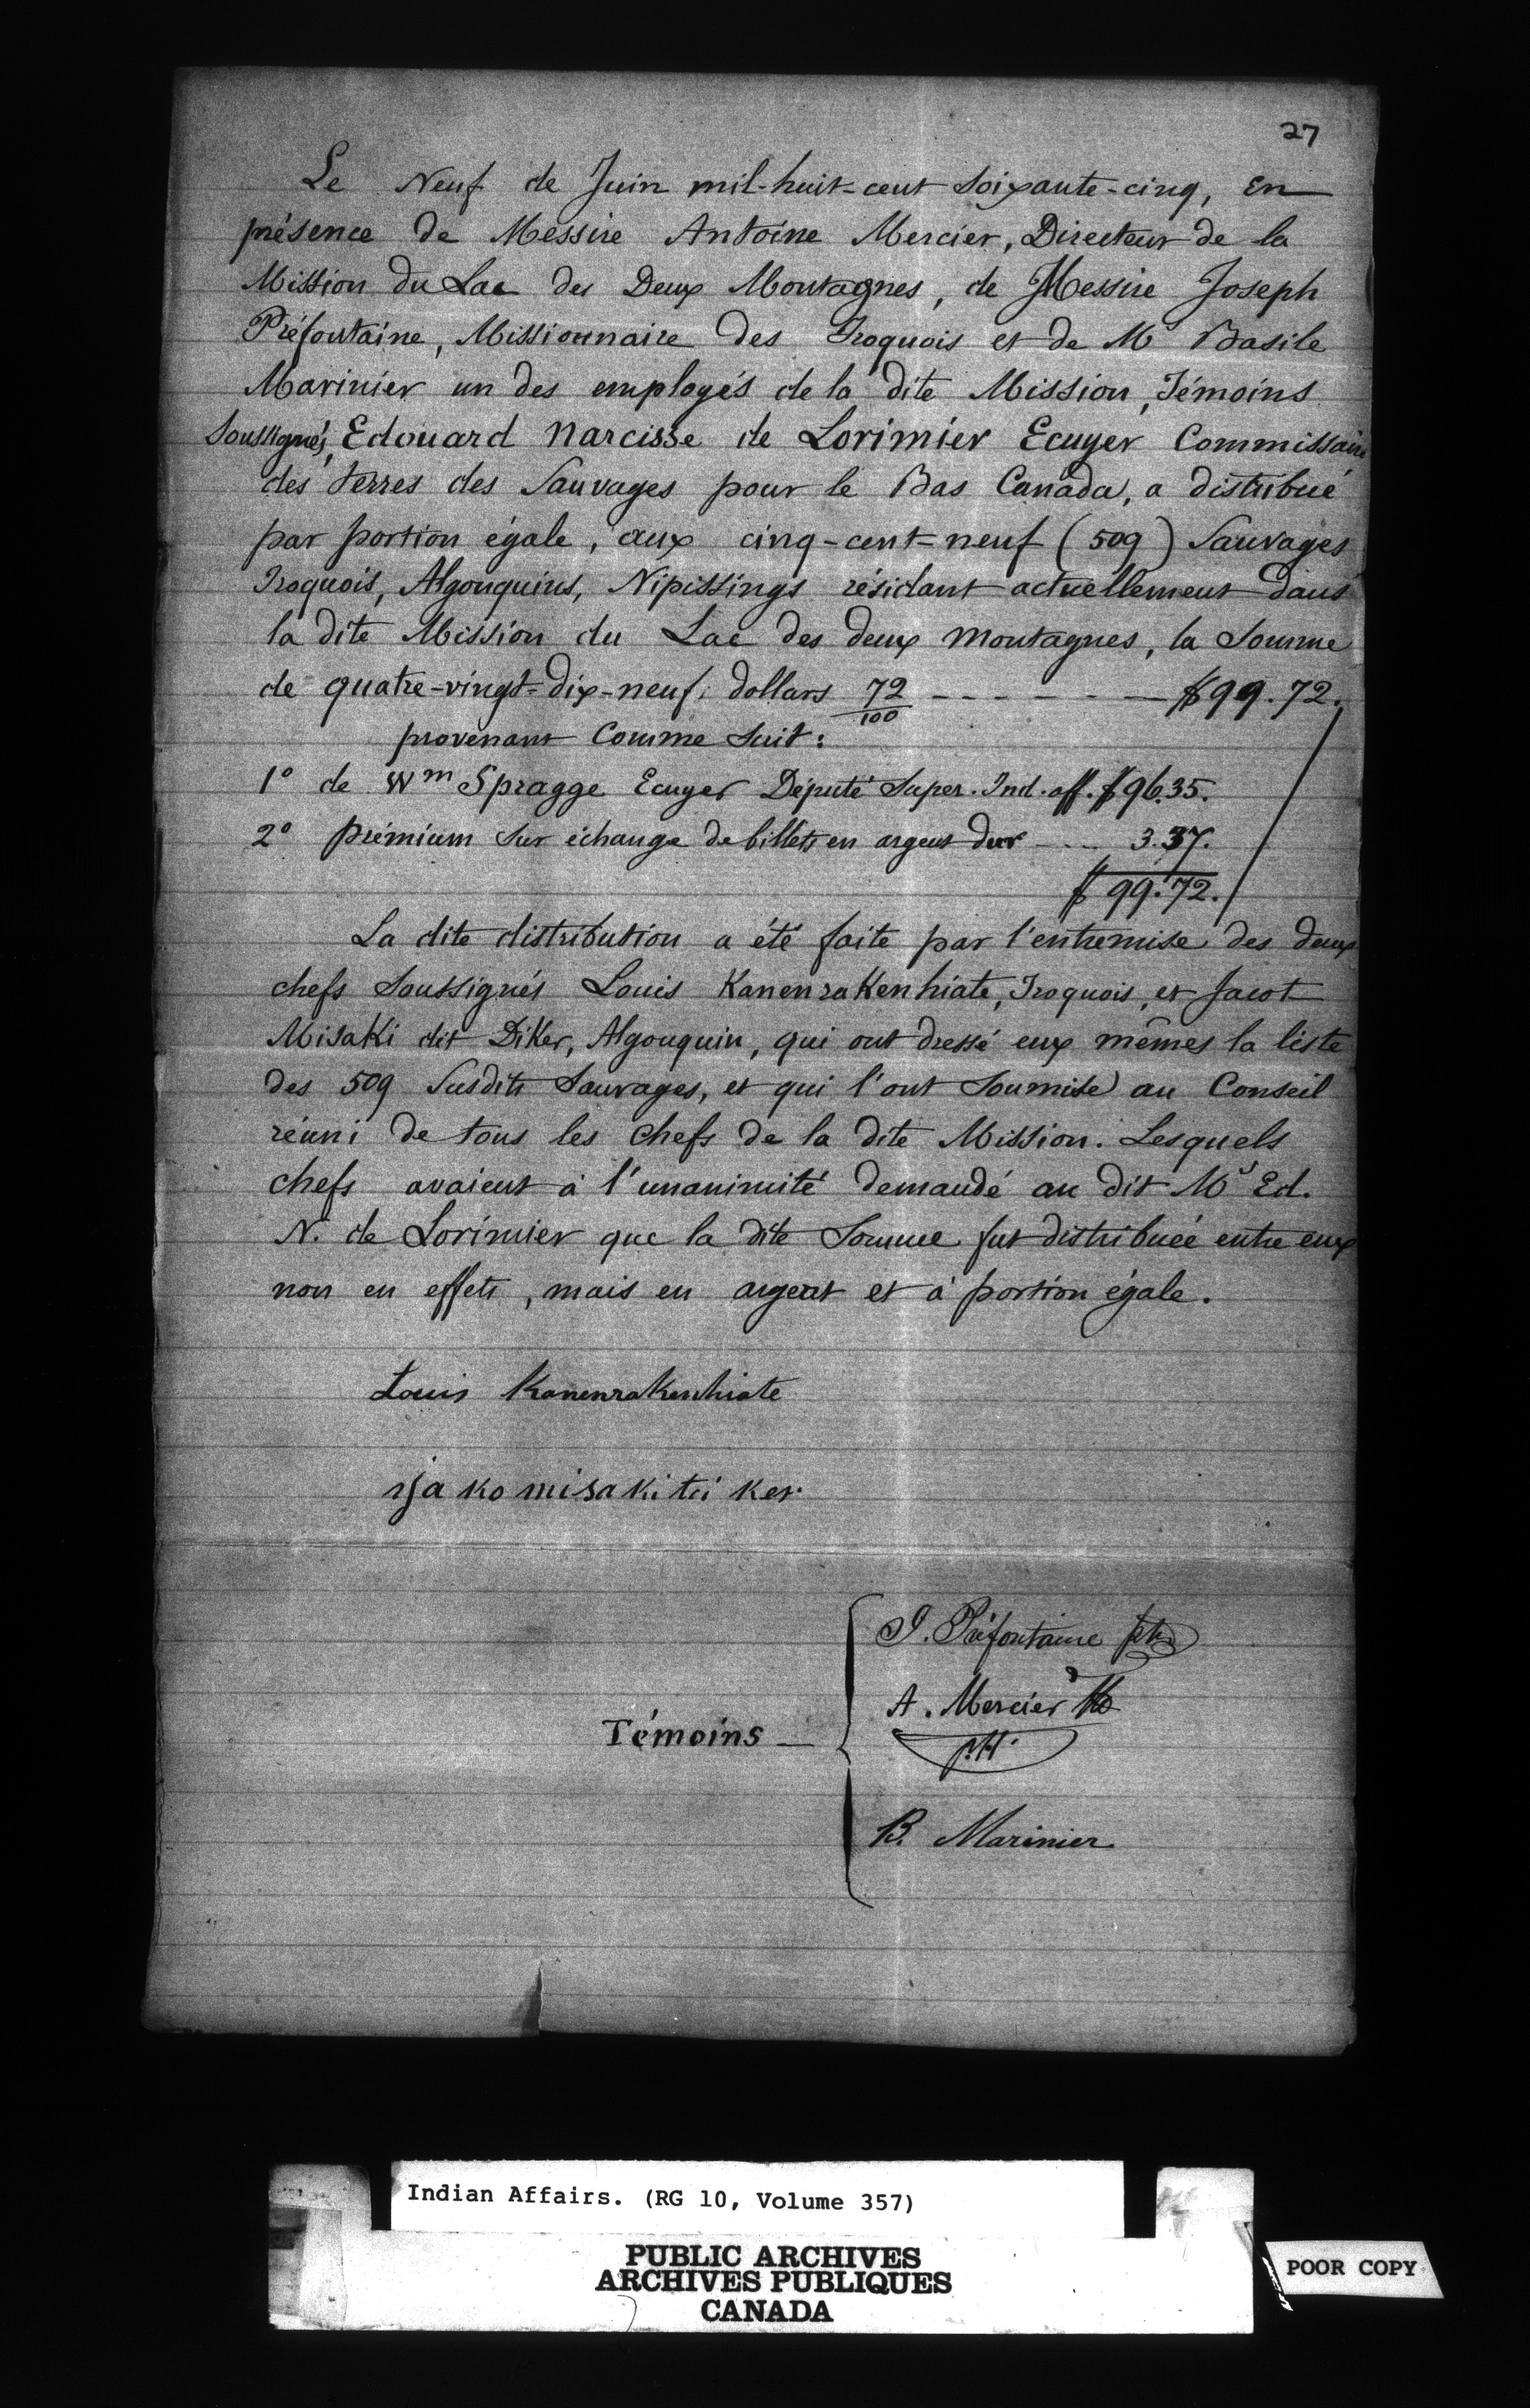 27
Le Neuf de Juin mil-huit-cent soixante-cinq, En
présence de Messire Antoine Mercier, Directeur de la
Mission du Lac des Deux Montagnes, de Messire Joseph
Préfontaine, Missionnaire des Iroquois et de Mr Basile
Marinier un des employés de la dite Mission, Témoins
Soussignés, Edouard Narcisse de Lorimier Ecuyer Commissaire
des terres des Sauvages pour le Bas Canada, a distribué
par portion égale, aux cinq-cent-neuf (509) Sauvages
Iroquois, Algonquins, Nipissings résidant actuellement dans
la dite Mission du Lac des deux Montagnes, la Somme
de quatre-vingt-dix-neuf dollars 72/100 - - - - - - $99.72.
provenant Comme Suit:
1° de Wm Spragge Ecuyer Député Super. Ind. aff. $96.35.
2° prémium sur échange de billets en argent dur - ... 3.37.
$ 99.72.
La dite distribution a été faite par l'entremise des deux
chefs Soussignés Louis Kanenrakenhiate, Iroquois, et Jacot
Misaki dit Diker, Algonquin, qui ont dressé eux mêmes la liste
des 509 Susdits Sauvages, et qui l'ont Soumise au Conseil
réuni de tous les Chefs de la dite Mission. Lesquels
chefs avaient à l'unanimité demandé au dit Mr Ed.
N. de Lorimier que la dite Somme fut distribuée entre eux
non en effets, mais en argent et à portion égale.
Louis Kanenrakenhiate
misaki
J. Préfontaine ptre
A. Mercier
Témoins —
B. Marinier
Indian Affairs. (RG 10, Volume 357)
PUBLIC ARCHIVES
ARCHIVES PUBLIQUES
CANADA
POOR COPY